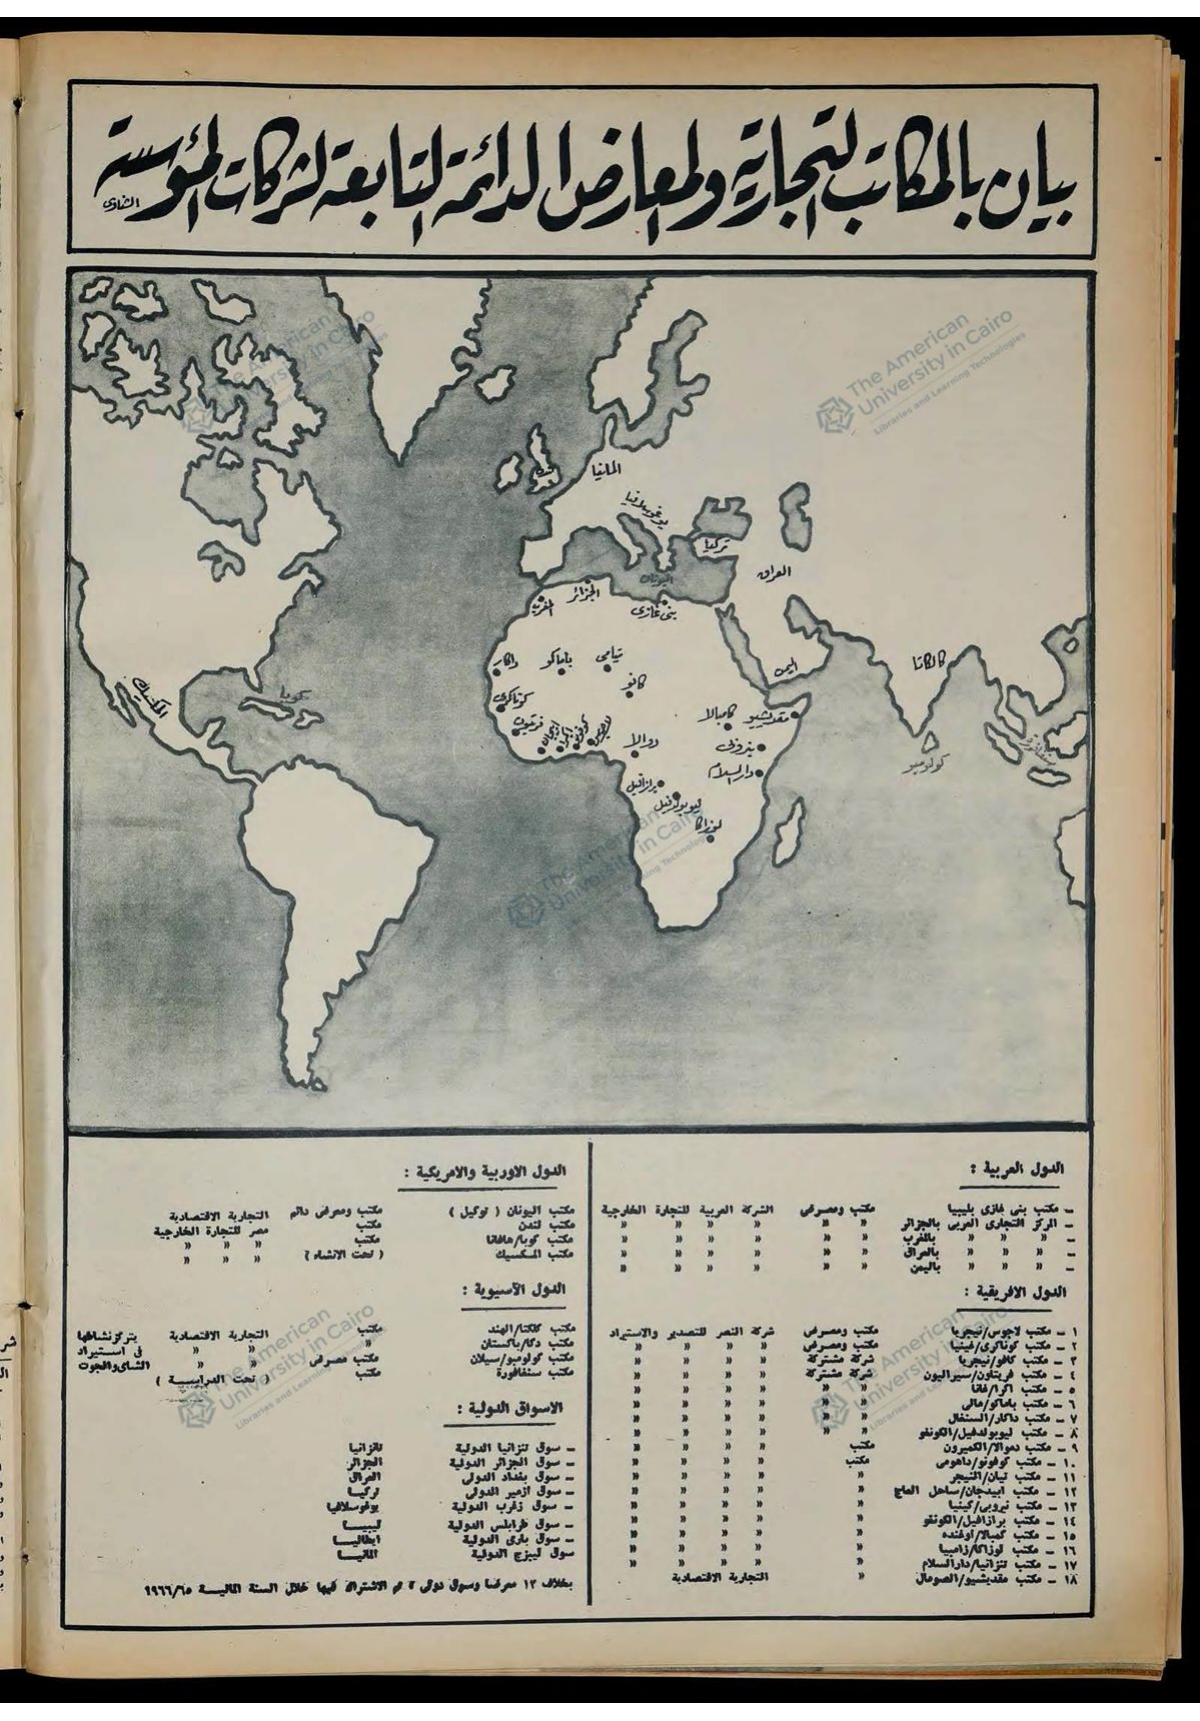 بيان بالمكاتب التجارية والمعارض الدائمة التابعة لشركات المؤسسة
الشاوى
المانيا
لندن
يوغوسلافيا
تركيا
اليونان
العراق
المغرب
الجزائر
بنى غازى
اليمن
كالكاتا
كولومبو
سنغافورة
المكسيك
كوبا
داكار
باماكو
نيامى
كانو
كوناكرى
فريتون
ابيجان
اكرا
كوتونو
لاجوس
دوالا
كامبالا
مقديشيو
نيروبى
دار السلام
برازافيل
ليوبولدفيل
لوزاكا
The American University in Cairo
Libraries and Learning Technologies
الدول العربية :
ــ مكتب بنى غازى بليبيا مكتب ومعرض الشركة العربية للتجارة الخارجية
ــ المركز التجارى العربى بالجزائر » » » » » »
ــ » » » بالمغرب » » » » » »
ــ » » » بالعراق » » » » » »
ــ » » » باليمن » » » » » »
الدول الافريقية :
١ ــ مكتب لاجوس/نيجريا مكتب ومعرض شركة النصر للتصدير والاستيراد
٢ ــ مكتب كوناكرى/غينيا مكتب ومعرض » » » »
٣ ــ مكتب كانو/نيجريا شركة مشتركة » » » »
٤ ــ مكتب فريتاون/سيراليون شركة مشتركة » » » »
٥ ــ مكتب اكرا/غانا » » » » » »
٦ ــ مكتب باماكو/مالى » » » » » »
٧ ــ مكتب داكار/السنغال » » » » » »
٨ ــ مكتب ليوبولدفيل/الكونغو » » » » » »
٩ ــ مكتب دموالا/الكميرون مكتب » » » »
١٠ ــ مكتب كوفونو/داهومى مكتب » » » »
١١ ــ مكتب نيان/النيجر » » » » »
١٢ ــ مكتب ابيدجان/ساحل العاج » » » » »
١٣ ــ مكتب نيروبى/كينيا » » » » »
١٤ ــ مكتب برازافيل/الكونغو » » » » »
١٥ ــ مكتب كمبالا/اوغنده » » » » »
١٦ ــ مكتب لوزاكا/زامبيا » » » » »
١٧ ــ مكتب تنزانيا/دارالسلام » » » » »
١٨ ــ مكتب مقديشيو/الصومال » التجارية الاقتصادية
الدول الاوربية والامريكية :
مكتب اليونان ( توكيل ) مكتب ومعرض دائم التجارية الاقتصادية
مكتب لندن مكتب مصر للتجارة الخارجية
مكتب كوبا/هافانا مكتب » » »
مكتب المكسيك ( تحت الانشاء ) » » »
الدول الآسيوية :
مكتب كلكتا/الهند مكتب التجارية الاقتصادية يتركز نشاطها
مكتب دكا/باكستان » » » فى استيراد
مكتب كولومبو/سيلان مكتب معرض » » الشاى والجوت
مكتب سنغافورة مكتب ( تحت الدراسة )
الاسواق الدولية :
ــ سوق تنزانيا الدولية تانزانيا
ــ سوق الجزائر الدولية الجزائر
ــ سوق بغداد الدولى العراق
ــ سوق ازمير الدولى تركيا
ــ سوق زغرب الدولية يوغوسلافيا
ــ سوق طرابلس الدولية ليبيا
ــ سوق بارى الدولية ايطاليا
سوق ليبزج الدولية المانيا
بخلاف ١٣ معرضا وسوق دولى تم الاشتراك فيها خلال السنة المالية ١٩٦٦/٦٥